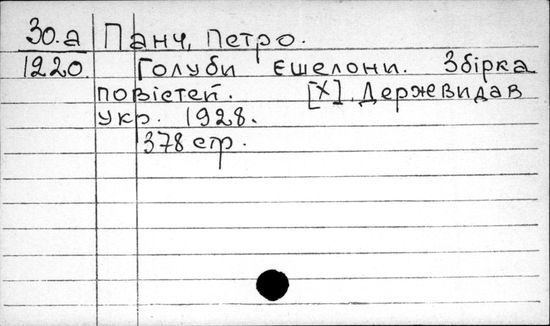 30.а Панч, Петро.
1220. Голуби єшелони. Збірка
повістей. [X]. Держевидав
Укр. 1928.
378 стр.